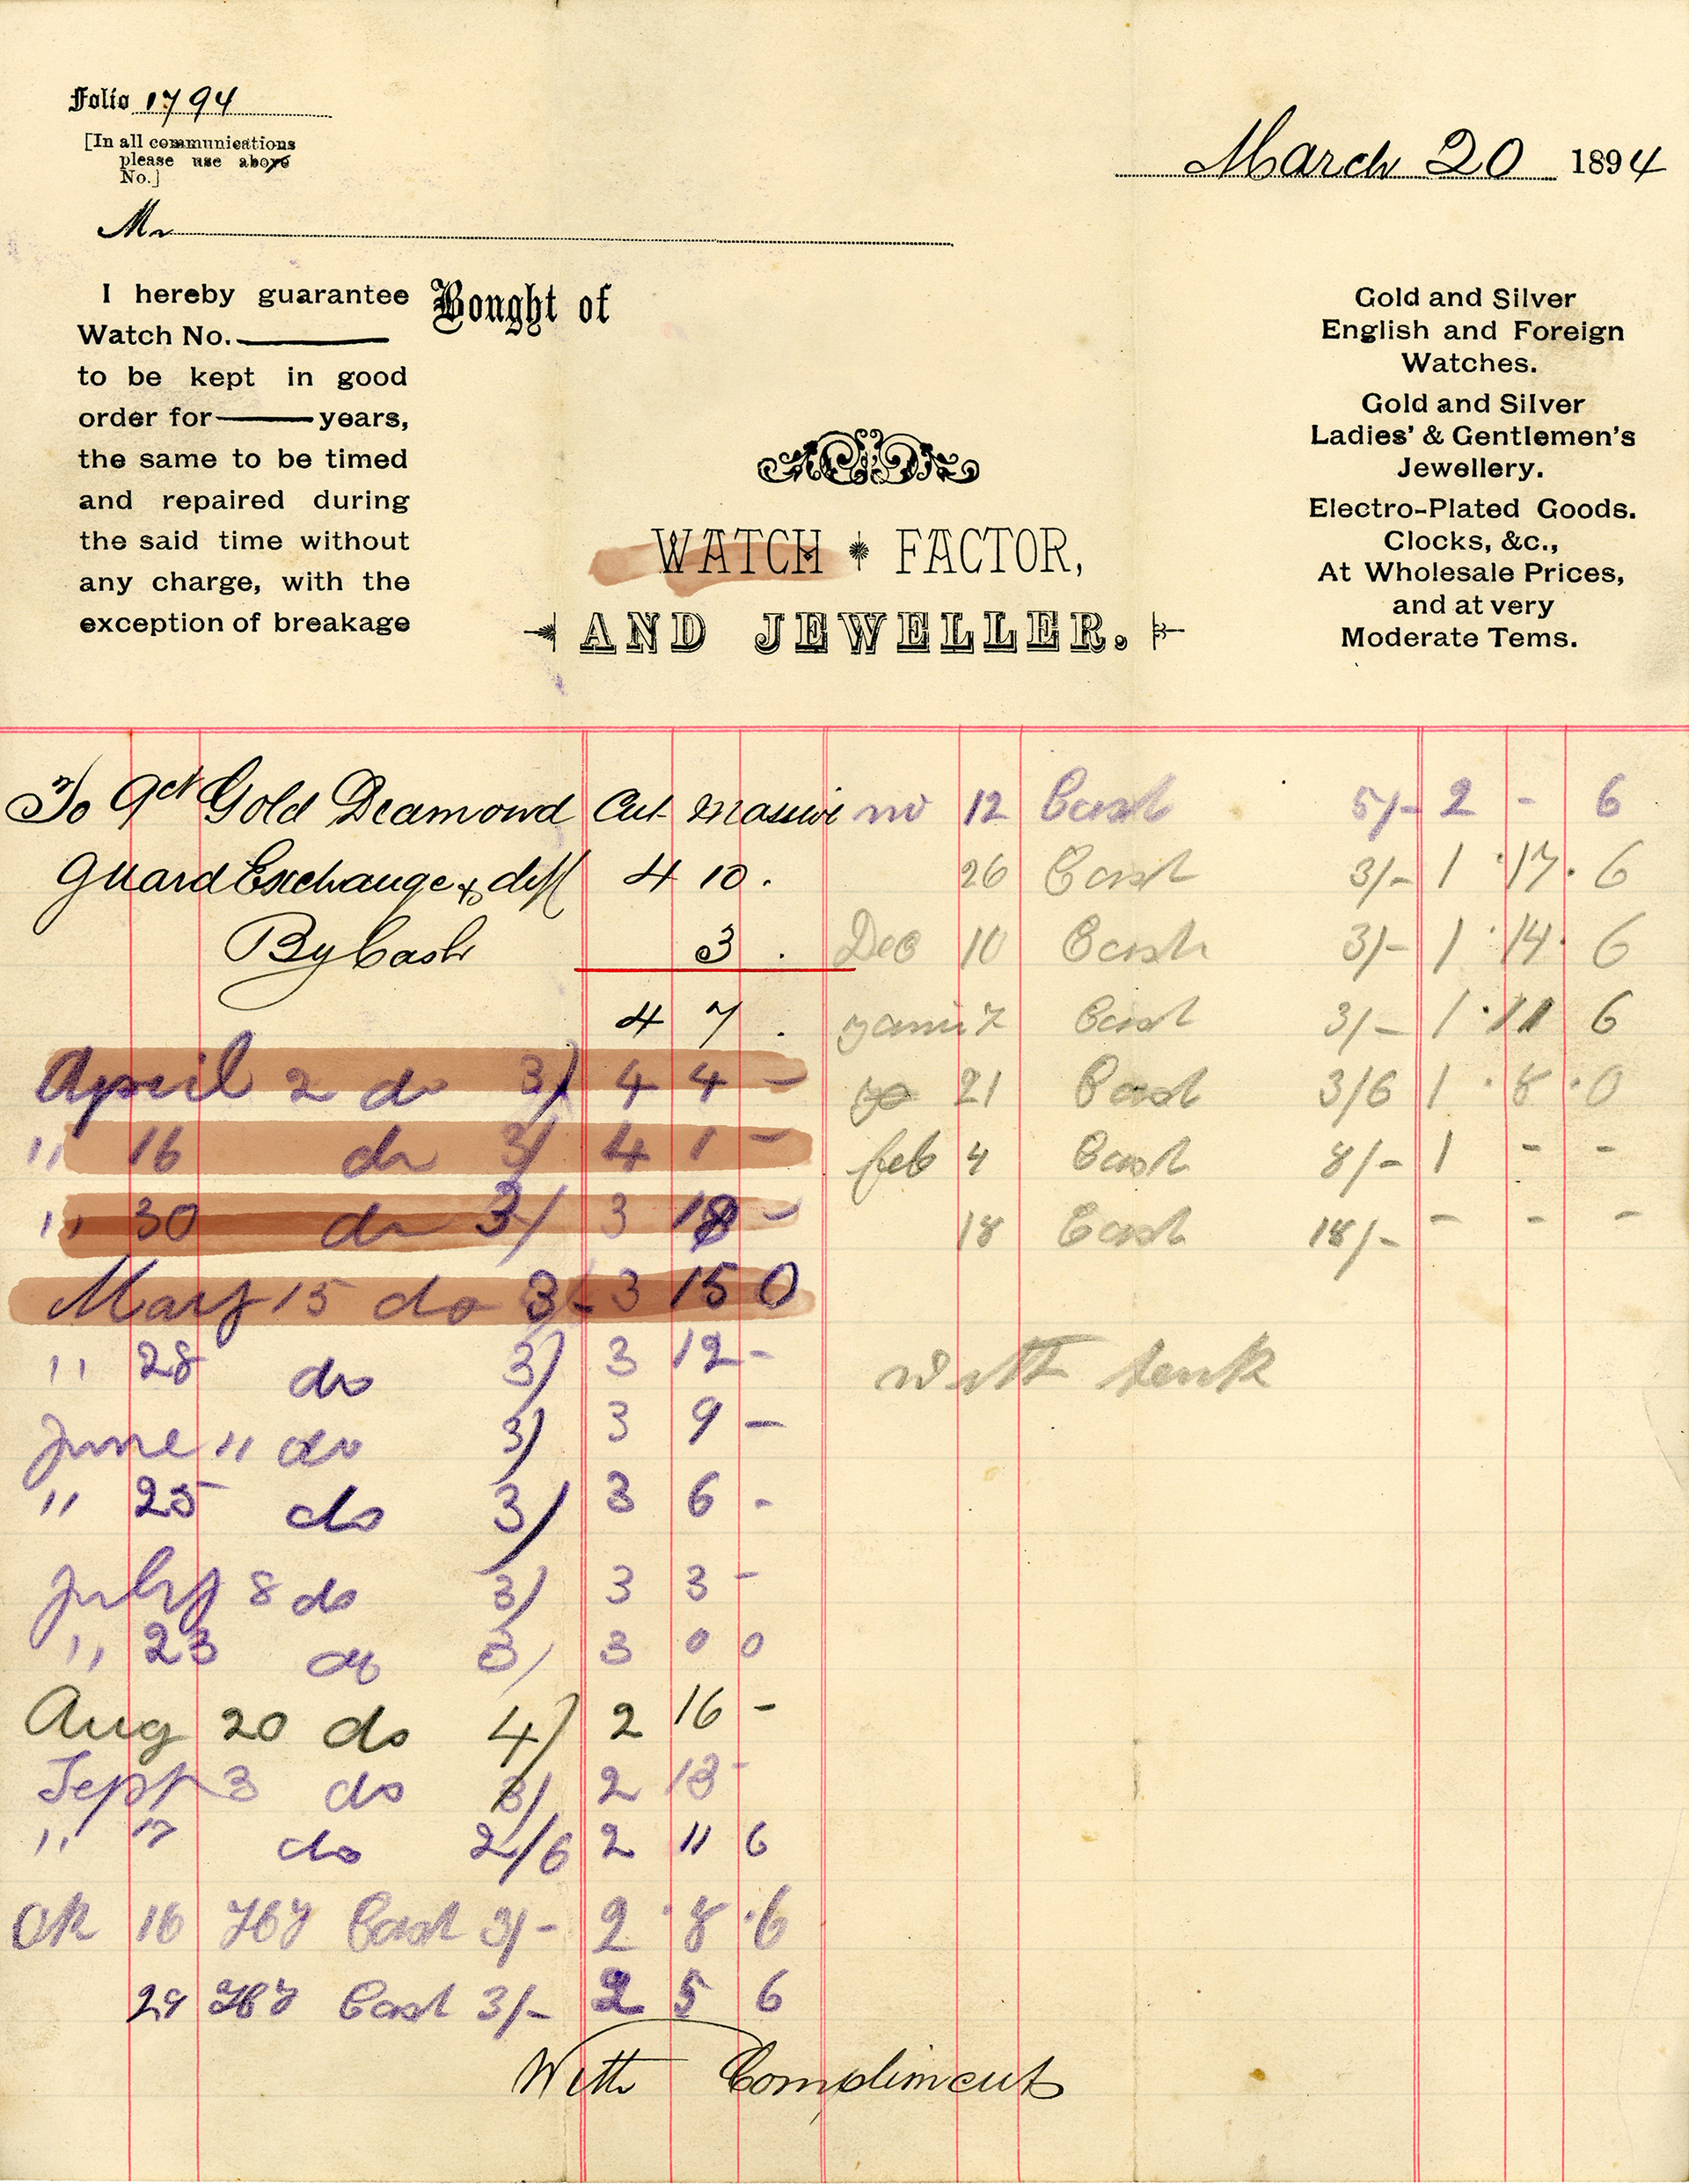 Folio 1794
[In all communications
please use above
No.]
March 20 1894
Mr
I hereby guarantee
Watch No.
to be kept in good
order for years,
the same to be timed
and repaired during
the said time without
any charge, with the
exception of breakage
Bought of
WATCH FACTOR,
AND JEWELLER.
Gold and Silver
English and Foreign
Watches.
Gold and Silver
Ladies' & Gentlemen's
Jewellery.
Electro-Plated Goods.
Clocks, &c.,
At Wholesale Prices,
and at very
Moderate Tems.
To 9ct Gold Deamond Cut Massive
Guard Exchange & diff 4 10 .
By Cash 3 .
4 7 .
April 2 do 3/ 4 4 -
" 16 do 3/ 4 1 -
" 30 do 3/ 3 18 -
May 15 do 3- 3 15 0
" 28 do 3/ 3 12 -
June " do 3/ 3 9 -
" 25 do 3/ 3 6 -
July 8 do 3/ 3 3 -
" 23 do 3/ 3 0 0
Aug 20 do 4/ 2 16 -
Sept 3 do 3/ 2 13 -
" 17 do 2/6 2 11 6
16 Cash 3/- 2 · 8 · 6
29 Cash 3/- 2 5 6
nov 12 Cash 5/- 2 - 6
26 Cash 3/- 1 · 17 · 6
Dec 10 Cash 3/- 1 · 14 · 6
7 Cash 3/- 1 · 11 6
21 Cash 3/6 1 · 8 · 0
feb 4 Cash 8/- 1 - -
18 Cash 18/- - - -
With Compliments